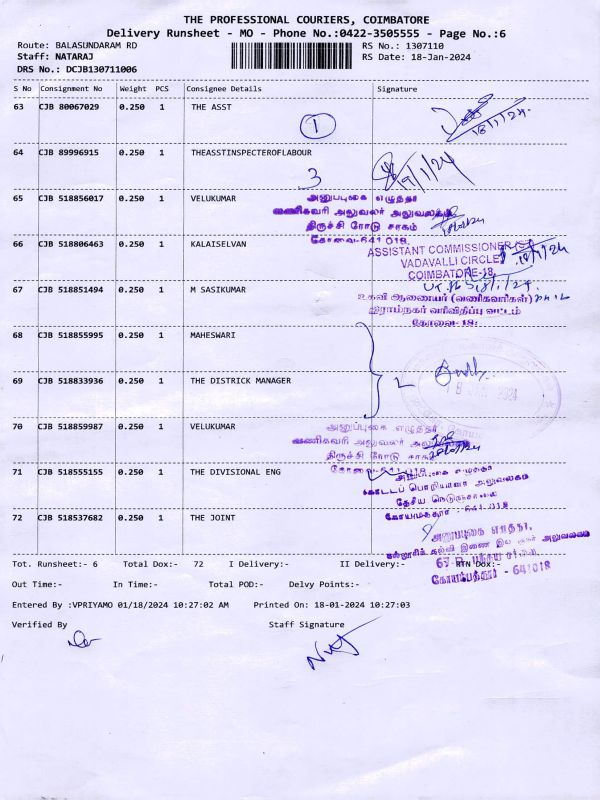 THE PROFESSIONAL COURIERS, COIMBATORE
Delivery Runsheet - MO - Phone No.:0422-3505555 - Page No.:6
Route: BALASUNDARAM RD
RS No.: 1307110
Staff: NATARAJ
RS Date: 18-Jan-2024
DRS No.: DCJB130711006
S No Consignment No Weight PCS Consignee Details Signature
63 CJB 80067029 0.250 1 THE ASST
18/1/24
1
64 CJB 89996915 0.250 1 THEASSTINSPECTEROFLABOUR
3
65 CJB 518856017 0.250 1 VELUKUMAR
அனுப்புகை எழுத்தர்
வணிகவரி அலுவலர் அலுவலகம்
திருச்சி ரோடு சரகம்
கோவை-641 018.
66 CJB 518806463 0.250 1 KALAISELVAN
ASSISTANT COMMISSIONER (ST)
VADAVALLI CIRCLE
COIMBATORE-18.
67 CJB 518851494 0.250 1 M SASIKUMAR
உதவி ஆணையர் (வணிகவரிகள்)
இராம்நகர் வரிவிதிப்பு வட்டம்
கோவை-18.
68 CJB 518855995 0.250 1 MAHESWARI
2024
69 CJB 518833936 0.250 1 THE DISTRICK MANAGER
70 CJB 518859987 0.250 1 VELUKUMAR
அனுப்புகை எழுத்தர்
வணிகவரி அலுவலர்
திருச்சி ரோடு சரக
71 CJB 518555155 0.250 1 THE DIVISIONAL ENG
அனுப்புகை எழுத்தர்
கோட்டப் பொறியாளர் அலுவலகம்
தேசிய நெடுஞ்சாலை
கோயமுத்தூர் - 641 018
72 CJB 518537682 0.250 1 THE JOINT
அனுப்புகை எழுத்தர்,
கோயம்புத்தூர் - 641018
Tot. Runsheet:- 6 Total Dox:- 72 I Delivery:- II Delivery:- RTN Dox:-
Out Time:- In Time:- Total POD:- Delvy Points:-
Entered By :VPRIYAMO 01/18/2024 10:27:02 AM Printed On: 18-01-2024 10:27:03
Verified By Staff Signature